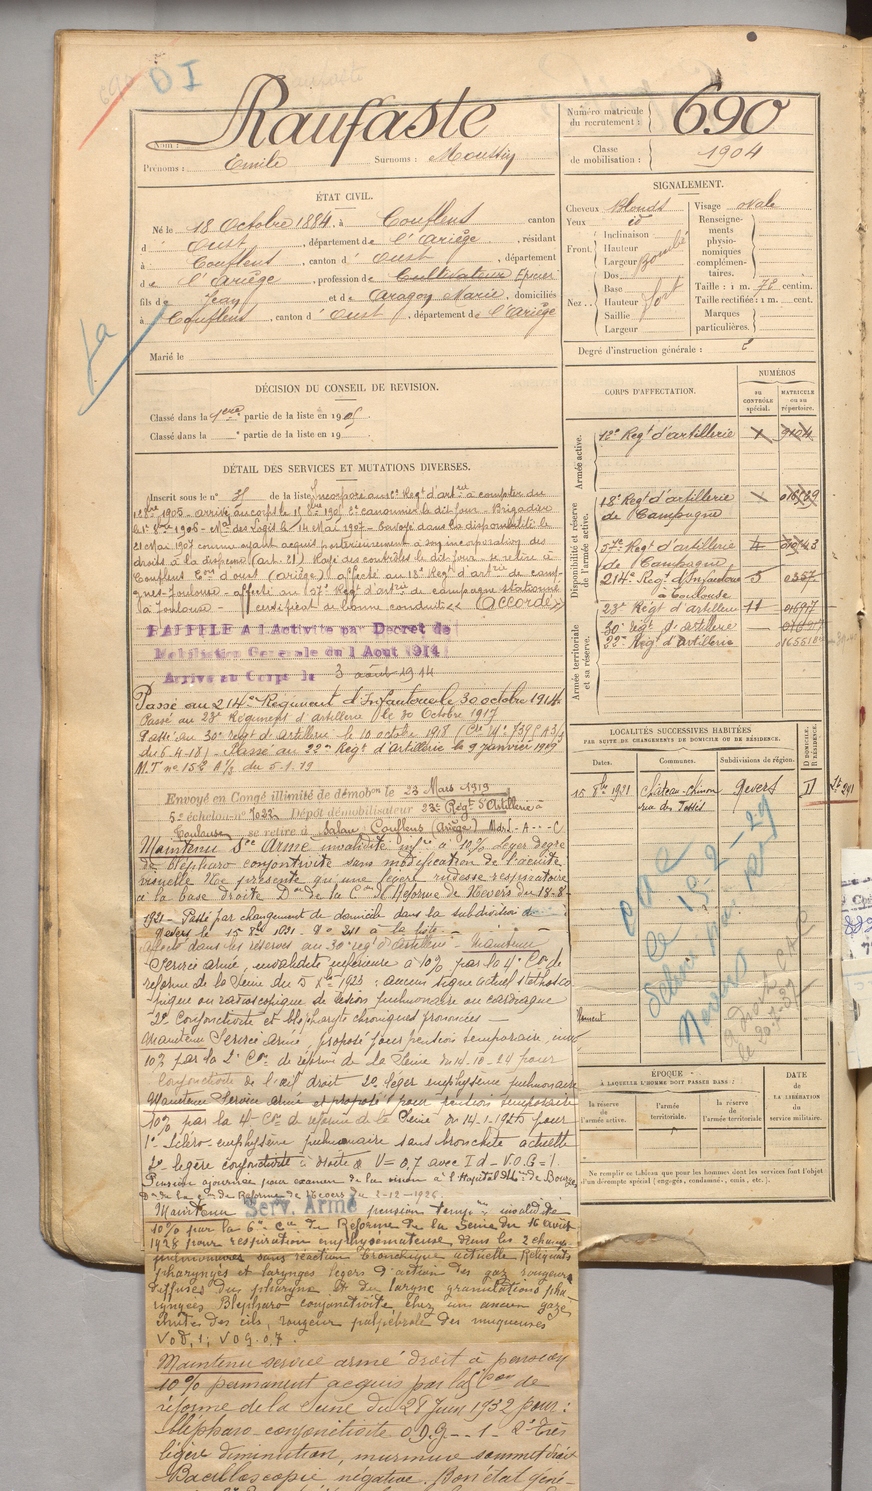 DI
Nom : Raufaste
Prénoms : Emile Surnoms : Moussin
Numéro matricule du recrutement : 690
Classe de mobilisation : 1904
ÉTAT CIVIL.
Né le 18 Octobre 1884, à Couflens canton
d'Oust, département de l'Ariège, résidant
à Couflens, canton d'Oust, département
de l'Ariège, profession de Cultivateur Epicier
fils de Jean et de Aragon Marie, domiciliés
à Couflens, canton d'Oust, département de l'Ariège
Marié le
SIGNALEMENT.
Cheveux Blonds
Yeux id
Front. Inclinaison
Hauteur
Largeur Bombé
Nez.. Dos
Base
Hauteur fort
Saillie
Largeur
Visage ovale
Renseignements physionomiques complémentaires.
Taille : 1 m. 72 centim.
Taille rectifiée : 1 m. cent.
Marques particulières.
Degré d'instruction générale : 2
DÉCISION DU CONSEIL DE REVISION.
Classé dans la 1ere partie de la liste en 1905.
Classé dans la partie de la liste en 19
DÉTAIL DES SERVICES ET MUTATIONS DIVERSES.
Inscrit sous le n° 31 de la liste Incorporé au 18e Regt d'artrie à compter du
1er 8bre 1905 - arrivé au corps le 1er 8bre 1905 2e canonnier le dit jour - Brigadier
le 1er 8bre 1906 - Mal des Logis le 14 Mai 1907 - Envoyé dans la disponibilité le
21 Mai 1907 comme ayant acquis postérieurement à son incorporation des
droits à la dispense (art. 21) Rayé des contrôles le dit jour - se retire à
Couflens Con d'oust (Ariège) affecté au 18e Regt d'artrie de camp-
gne - Toulouse - affecté au 57e Regt d'artrie de campagne stationné
à Toulouse - certificat de bonne conduite « Accordé »
RAPPELE A l'Activité par Decret de
Mobilisation Generale du 1 Aout 1914
Arrive au Corps le 3 août 1914
Passé au 214e Régiment d'Infanterie le 30 octobre 1914
Passé au 23e Régiment d'artillerie le 30 Octobre 1917
Passé au 30e regt d'artillerie le 10 octobre 1918
du 6-4-18) - Classé au 22e Regt d'artillerie le 9 janvier 1919
M.T n° 152 A/3 du 5.1.19
Envoyé en Congé illimité de démobon le 23 Mars 1919
5e échelon n° 7022 Dépôt démobilisateur 23e Régt d'Artillerie à
Toulouse se retire à Salau, Couflens (Ariège)
Maintenu Sce Armé invalidité infre à 10% Léger degré
de blépharo conjontivite sans modification de l'acuité
visuelle Ne présente qu'une légère rudesse respiratoire
à la base droite Don de la Con de Réforme de Nevers du 18-8-
1921 - Passé par changement de domicile dans la subdivision de
Nevers le 15 8bre 1921 - N° 211 à la liste
affecté dans les réserves au 30e regt d'artillerie - Maintenu
Service armé, invalidité inférieure à 10% par la 4e Con de
réforme de la Seine du 5 Xbre 1923 : aucun signe actuel stéthosco
pique ou radioscopique de lésion pulmonaire ou cardiaque
2° Conjonctivite et blépharyte chroniques prononcées
Maintenu Service Armé, proposé pour pension temporaire, inv
10% par la 2e Con de réforme de la Seine du 14-10-24 pour
Conjonctivite de l'œil droit 2° léger emphysème pulmonaire
Maintenu Service armé et proposé pour pension temporaire
10% par la 4e Con de réforme de la Seine du 14-1-1925 pour
1° Scléro-emphysème pulmonaire sans bronchite actuelle
2° légère conjonctivite à droite V = 0,7 avec I d - V.O.G = 1.
Pension ajournée pour examen de la vision à l'Hôpital Mre de Bourges
Don de la Con de Réforme de Nevers du 2-12-1926
Maintenu Serv. Armé pension tempre invalidité
10% par la 6e Con de Réforme de la Seine du 16 avril
1928 pour respiration emphysémateuse dans les 2 champs
pulmonaires sans réaction bronchique actuelle Reliquats
pharyngés et laryngés légers d'action des gaz rougeurs
diffuses du pharynx et du larynx granulations pha-
ryngées Blépharo conjonctivite chez un ancien gazé
chutes des cils, rougeur palpébrale des muqueuses
VOD, 1 ; VOG. 0,7.
Maintenu service armé droit à pension
10% permanent acquis par la Con de
réforme de la Seine du 28 Juin 1932 pour :
blépharo-conjonctivite O.D.G - 1 - 2° très
légère diminution, murmure sommet droit
Bacilloscopie négative. Bon état géné-
CORPS D'AFFECTATION.
NUMÉROS
au contrôle spécial.
matricule ou au répertoire.
Armée active.
18e Regt d'artillerie 9104
Disponibilité et réserve de l'armée active.
18e Regt d'artillerie
de Campagne
57e Regt d'artillerie
de Campagne
214e Regt d'Infanterie 5 0357
à Toulouse
Armée territoriale et sa réserve.
23e Régt d'artillerie 11 016917
30e regt d'artillerie
22e Regt d'artillerie
LOCALITÉS SUCCESSIVES HABITÉES
PAR SUITE DE CHANGEMENTS DE DOMICILE OU DE RÉSIDENCE.
Dates. Communes. Subdivisions de région. D. DOMICILE. R. RÉSIDENCE.
15 8bre 1921 Château-chinon Nevers D
rue des Fossés
CAC
le 15-2-29
Nevers
à droit CAC
le 20-7-37
ÉPOQUE
À LAQUELLE L'HOMME DOIT PASSER DANS :
la réserve de l'armée active.
l'armée territoriale.
la réserve de l'armée territoriale
DATE de LA LIBÉRATION du service militaire.
Ne remplir ce tableau que pour les hommes dont les services font l'objet
d'un décompte spécial (engagés, condamnés, omis, etc.).